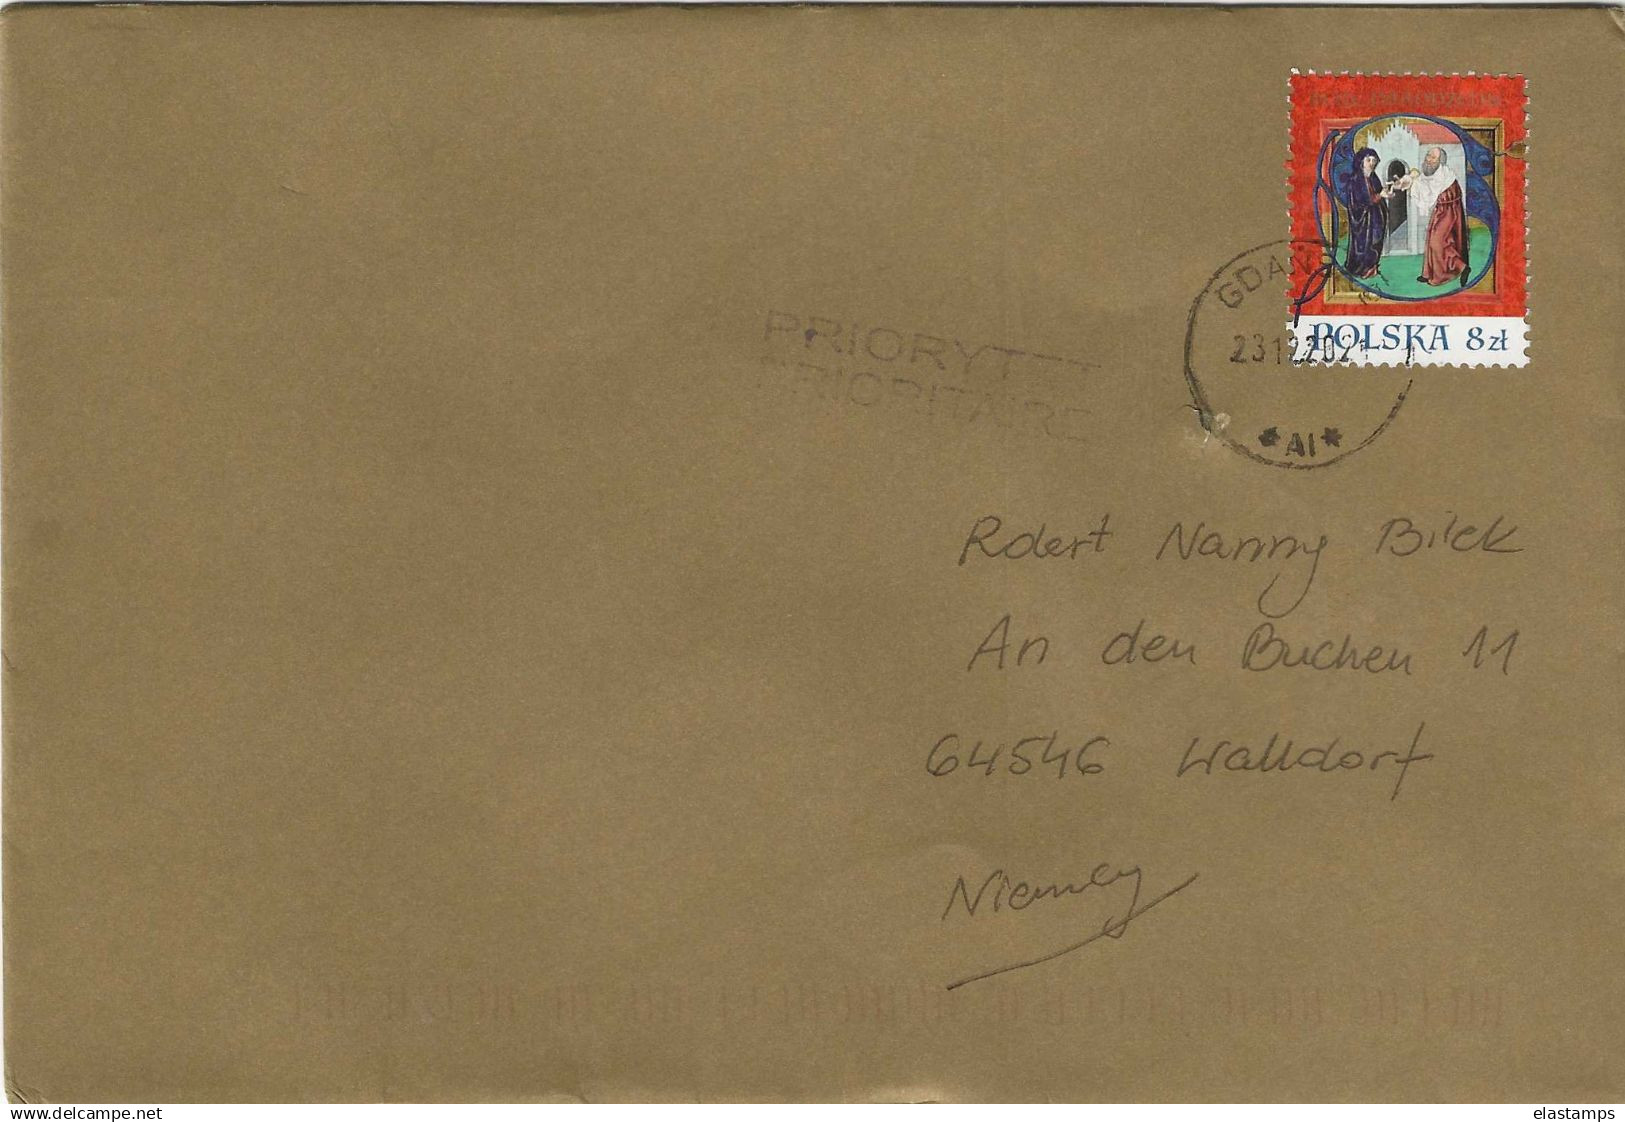 POLSKA 8 zł
GDAŃ
23122021
*AI*
PRIORYTET
PRIORITAIRE
Robert Nanny Bilek
An den Buchen 11
64546 Walldorf
Niemcy
www.delcampe.net
elastamps